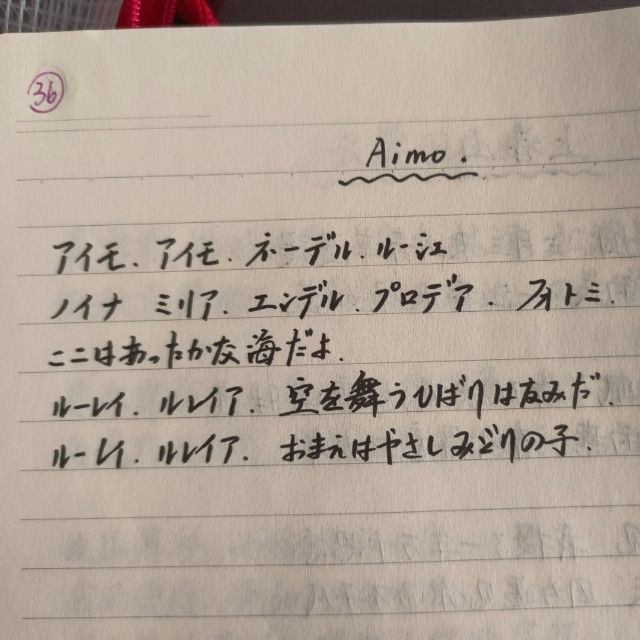 36
Aimo.
アイモ、アイモ、ネーデル、ルーシェ
ノイナ ミリア、エンデル、プロデア、フォトミ、
ここはあったかな海だよ、
ルーレイ、ルレイア、空を舞うひばりはなみだ、
ルーレイ、ルレイア、おまえはやさしみどりの子、